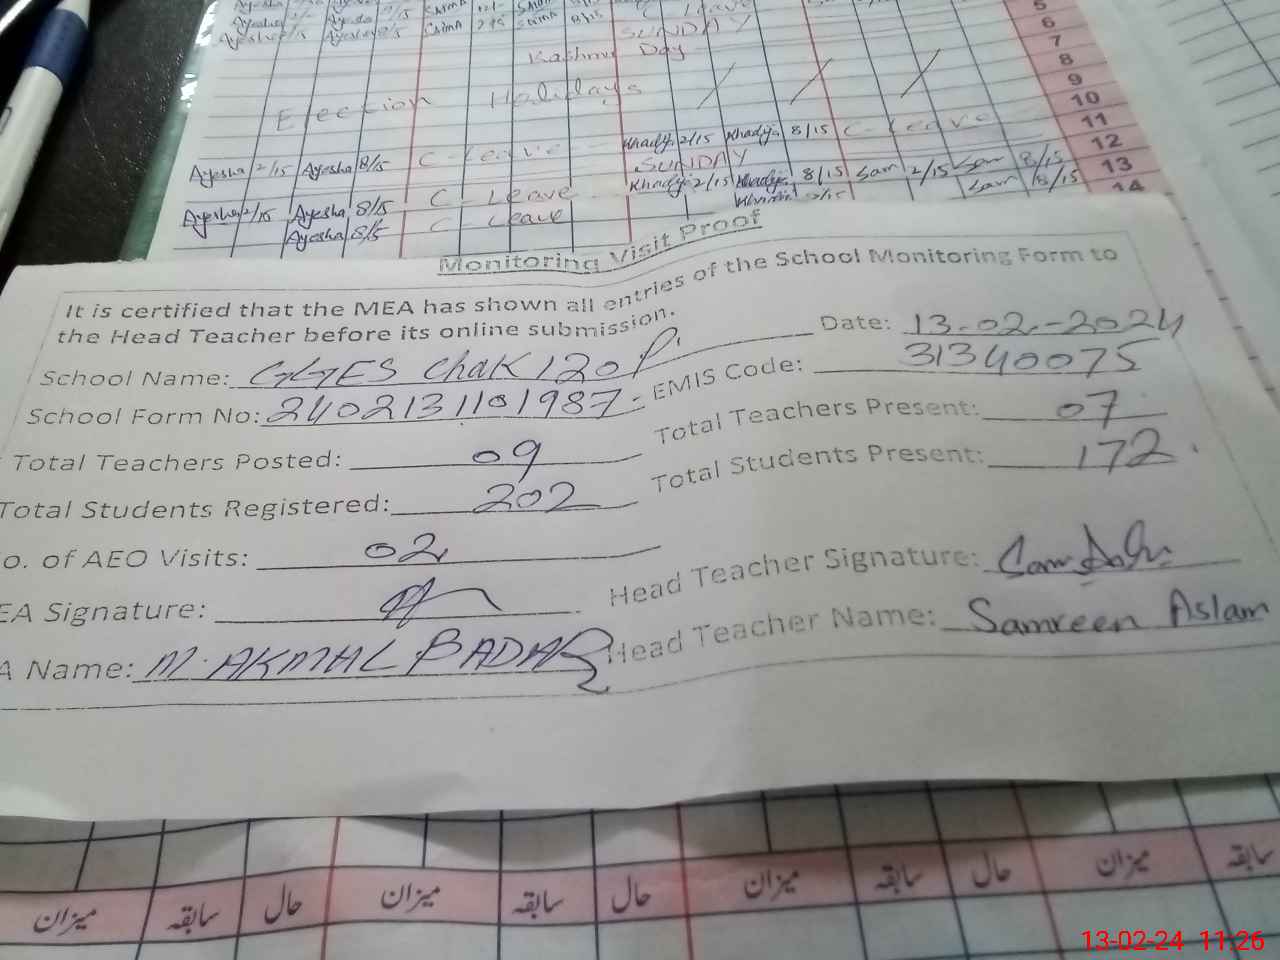 5
SUNDAY
6
Kashmir Day
7
8
Election Holidays
9
10
Khadija 2/15 Khadija 8/15 C - Leave
11
Ayesha 2/15 Ayesha 8/15 C - Leave SUNDAY
12
Khadija 2/15 Khadija 8/15 Sam 2/15 Sam 8/15
13
Ayesha 2/15 Ayesha 8/15 C - Leave
Sam 8/15
14
Ayesha 8/15 C - Leave
Monitoring Visit Proof
It is certified that the MEA has shown all entries of the School Monitoring Form to
the Head Teacher before its online submission.
Date: 13-02-2024
School Name: GGES Chak 120 P.
EMIS Code: 31340075
School Form No: 2402131101987
Total Teachers Present: 07
Total Teachers Posted: 09
Total Students Present: 172
Total Students Registered: 202
o. of AEO Visits: 02
Head Teacher Signature:
EA Signature:
Head Teacher Name: Samreen Aslam
A Name: M. AKMAL BADAR
میزان سابقہ حال میزان سابقہ حال میزان سابقہ حال میزان سابقہ
13-02-24 11:26